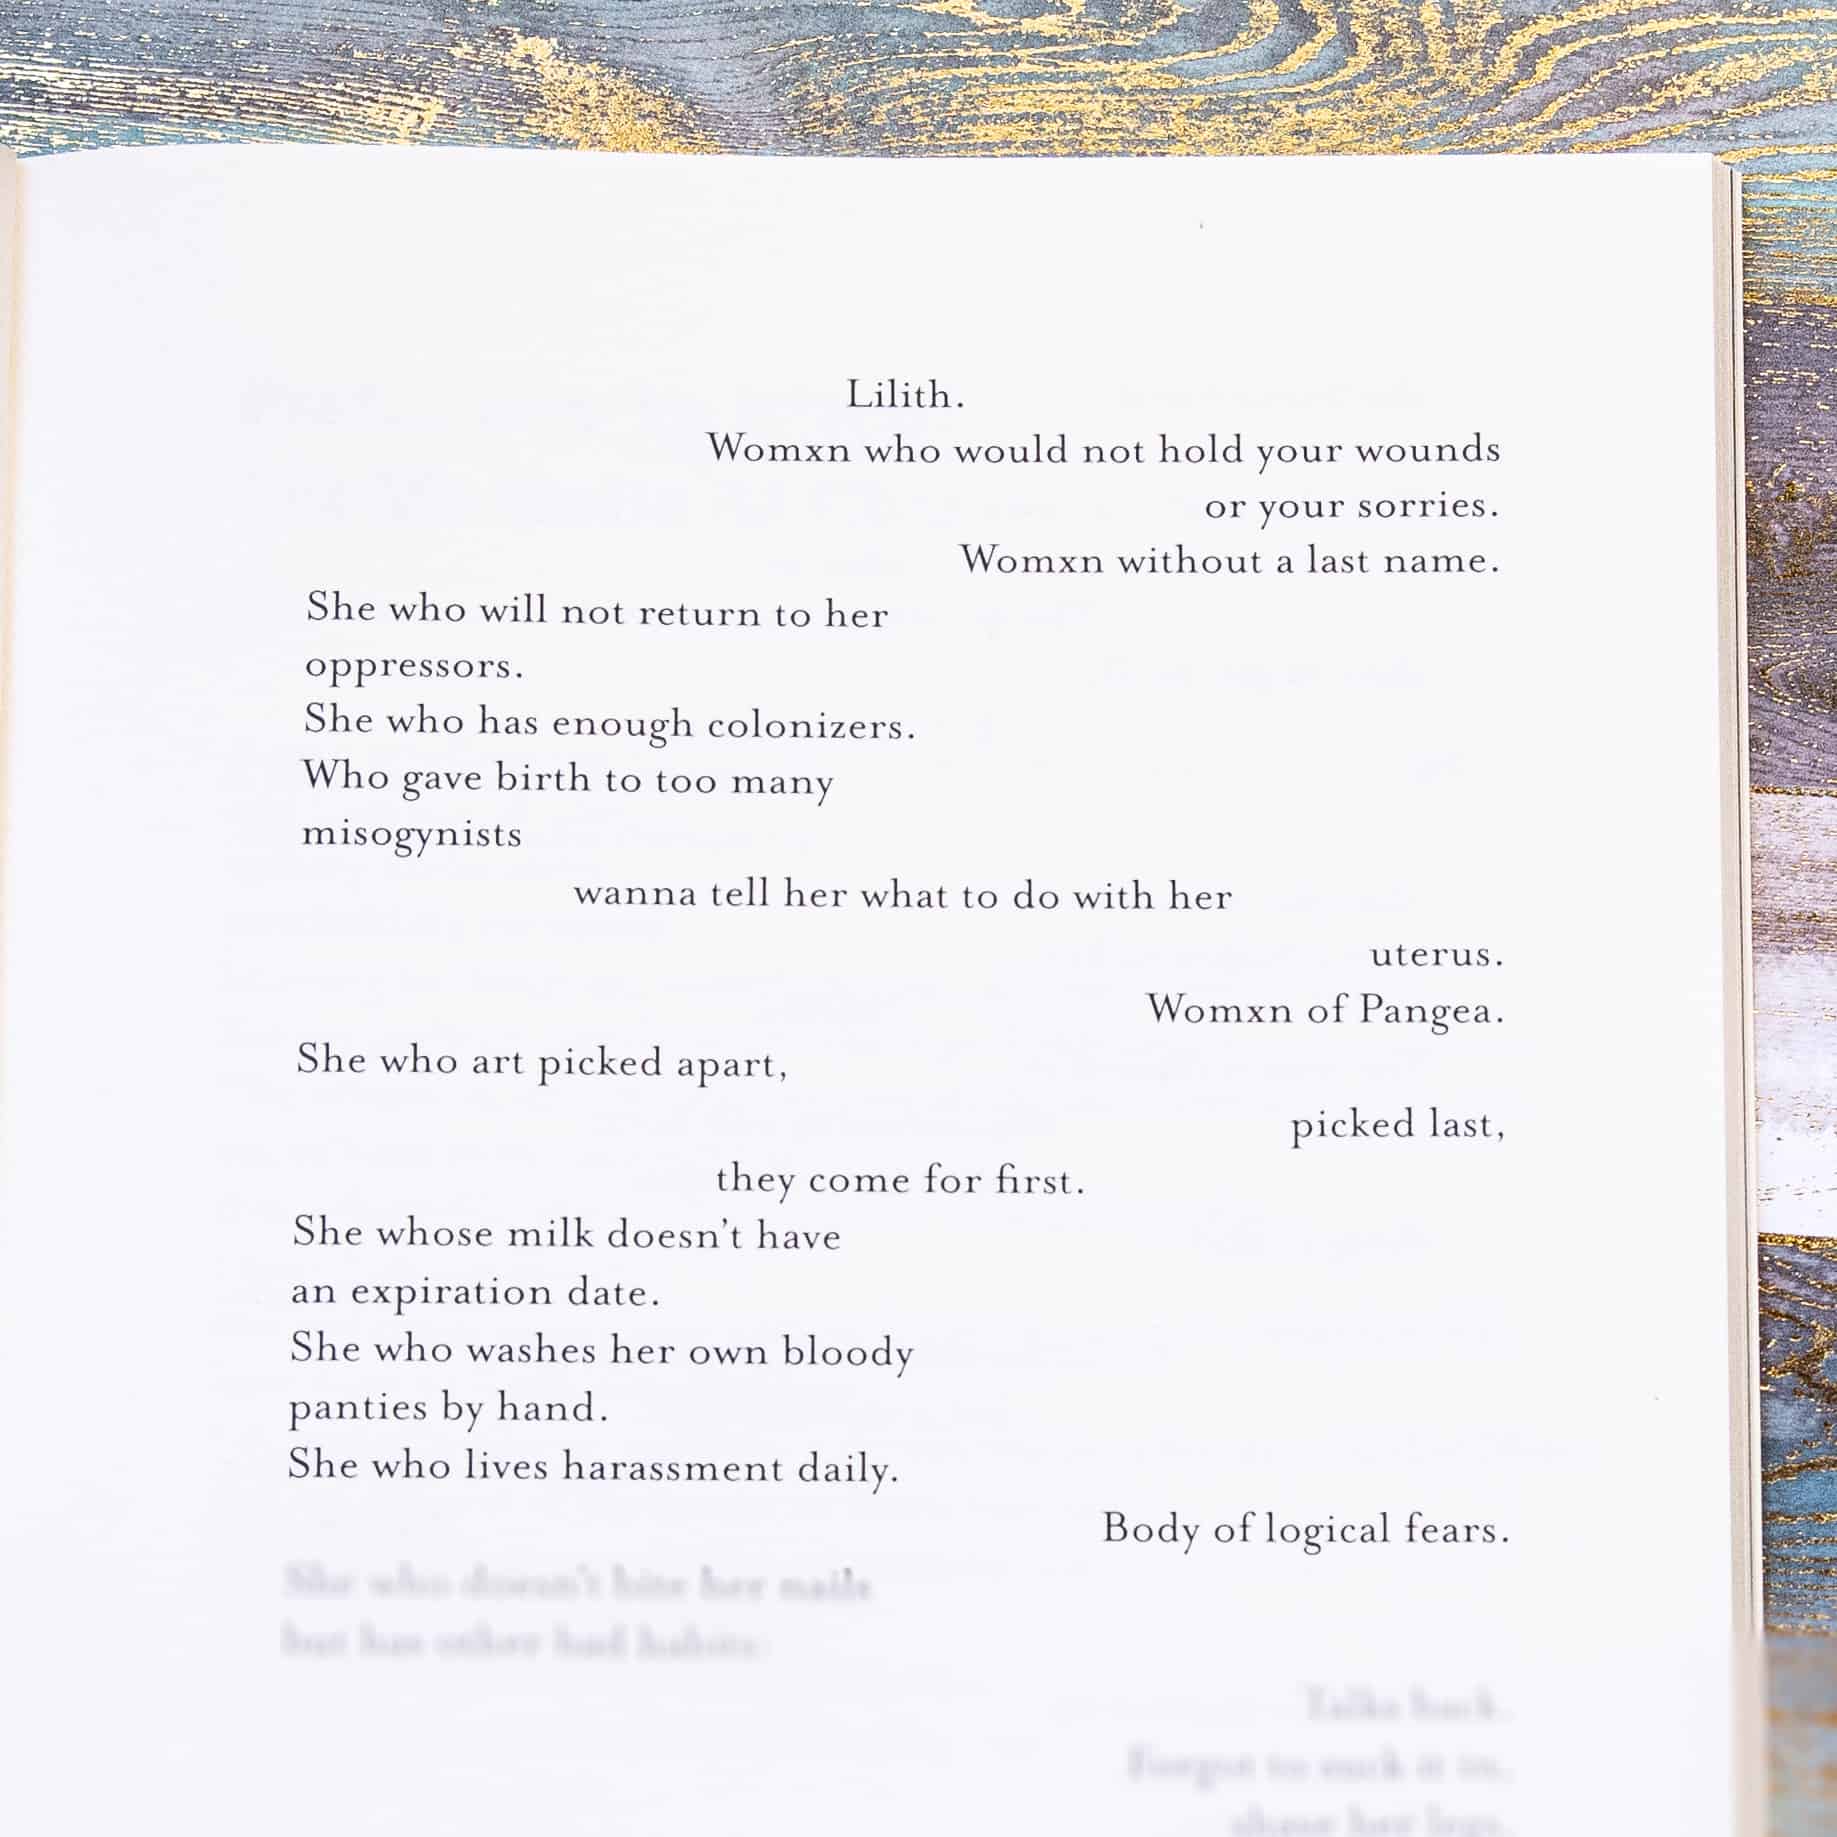 Lilith.
Womxn who would not hold your wounds
or your sorries.
Womxn without a last name.
She who will not return to her
oppressors.
She who has enough colonizers.
Who gave birth to too many
misogynists
wanna tell her what to do with her
uterus.
Womxn of Pangea.
She who art picked apart,
picked last,
they come for first.
She whose milk doesn't have
an expiration date.
She who washes her own bloody
panties by hand.
She who lives harassment daily.
Body of logical fears.
She who doesn't bite her nails
but has other bad habits.
Talks back.
Forgot to suck it in,
shave her legs,